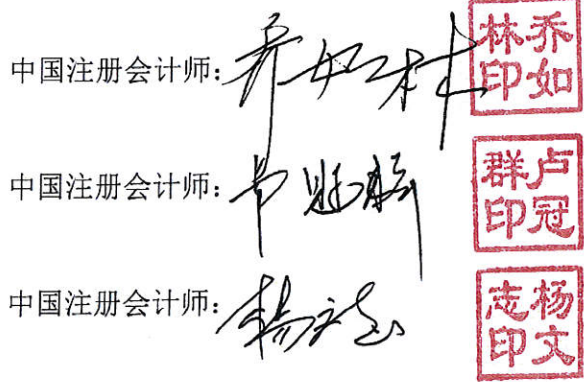 中国注册会计师：乔如林 乔如林印
中国注册会计师：卢冠群 卢冠群印
中国注册会计师：杨文志 杨文志印